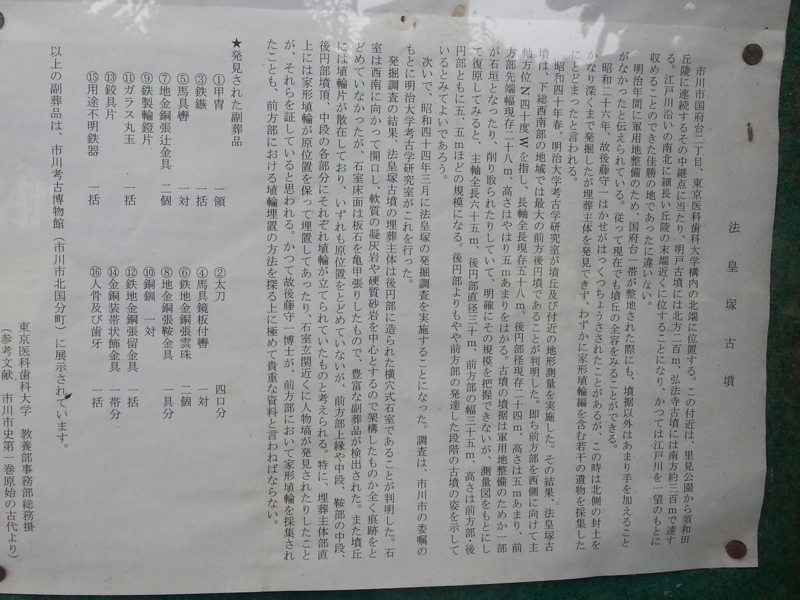 法皇塚古墳
市川市国府台二丁目、東京医科歯科大学構内の北端に位置する。この付近は、里見公園から須和田
丘陵に連続するその中継点に当たり、明戸古墳には北方二百m、弘法寺古墳には南方約三百mで達す
る。江戸川沿いの南北に細長い丘陵の末端近くに位することになり、かつては江戸川を一望のもとに
収めることのできた佳勝の地であったに違いない。
明治年間に軍用地整備のため、国府台一帯が整地された際にも、墳裾以外はあまり手を加えること
がなかったと伝えられている。従って現在でも墳丘の全容をみることができる。
昭和二十六年、故後藤守一はかせがはっくつちょうさされたことがあるが、この時は北側の封土を
かなり深くまで発掘したが埋葬主体を発見できず、わずかに家形埴輪編を含む若干の遺物を採集した
にとどまったと言われる。
昭和四十年春、明治大学考古学研究室が墳丘及び付近の地形測量を実施した。その結果、法皇塚古
墳は、下総西南部の地域では最大の前方後円墳であることが判明した。即ち前方部を西側に向けて主
軸方位N四十度Wを指し、長軸全長現存五十八m、後円部径現存二十四m、高さは五mあまり、前
方部先端幅現存二十八m、高さはやはり五mあまりをはかる。古墳の墳裾は軍用地整備のためか一部
が石垣となったり、削り取られたりしていて、明確にその規模を把握できないが、測量図をもとにし
て復原してみると、主軸全長六十五m、後円部直径三十m、前方部の幅三十五m、高さは前方部・後
円部ともに五・五mほどの規模になる。後円部よりもやや前方部の発達した段階の古墳の姿を示して
いるとみてよいであろう。
次いで、昭和四十四年三月に法皇塚の発掘調査を実施することになった。調査は、市川市の委嘱の
もとに明治大学考古学研究室がこれを行った。
発掘調査の結果、法皇塚古墳の埋葬主体は後円部に造られた横穴式石室であることが判明した。石
室は西南に向かって開口し、軟質の凝灰岩や硬質砂岩を中心とするので架構したものか全く痕跡をと
どめていなかったが、石室床面は板石を亀甲張りしたもので、豊富な副葬品が検出された。また墳丘
には埴輪片が散在しており、いずれも原位置をとどめていないが、前方部上縁や中段、鞍部の中段、
後円部墳頂、中段の各部分にそれぞれ埴輪が立てられていたものと考えられる。特に、埋葬主体部直
上には家形埴輪が原位置を保って埋置してあったり、石室玄関近くに人物塙が発見されたりしたこと
が、それらを証していると思われる。かつて故後藤守一博士が、前方部において家形埴輪を採集され
たことも、前方部における埴輪埋置の方法を探る上に極めて貴重な資料と言わねばならない。
★発見された副葬品
①甲冑 一領 ②太刀 四口分
③鉄鏃 一括 ④馬具鏡板付轡 一対
⑤馬具轡 一対 ⑥鉄地金銅張雲珠 二個
⑦地金銅張辻金具 二個 ⑧地金銅張鞍金具 一具分
⑨鉄製輪鐙片 ⑩銅釧 一対
⑪ガラス丸玉 一括 ⑫鉄地金銅張留金具 一括
⑬鉸具片 ⑭金銅装帯状飾金具 一帯分
⑮用途不明鉄器 一括 ⑯人骨及び歯牙 一括
以上の副葬品は、市川考古博物館(市川市北国分町)に展示されています。
東京医科歯科大学 教養部事務部総務掛
(参考文献 市川市史第一巻原始の古代より)